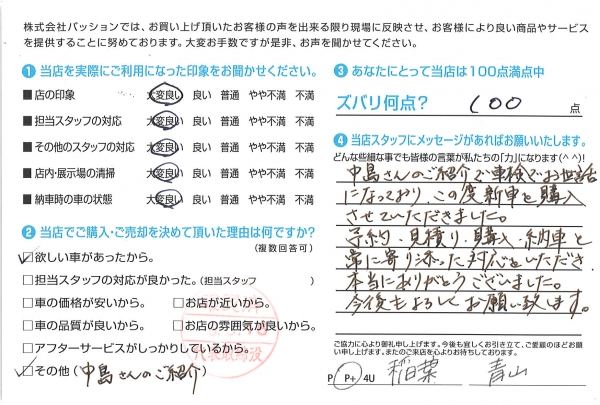 株式会社パッションでは、お買い上げ頂いたお客様の声を出来る限り現場に反映させ、お客様により良い商品やサービス
を提供することに努めております。大変お手数ですが是非、お声を聞かせてください。
❶ 当店を実際にご利用になった印象をお聞かせください。
■ 店の印象 大変良い 良い 普通 やや不満 不満
■ 担当スタッフの対応 大変良い 良い 普通 やや不満 不満
■ その他のスタッフの対応 大変良い 良い 普通 やや不満 不満
■ 店内・展示場の清掃 大変良い 良い 普通 やや不満 不満
■ 納車時の車の状態 大変良い 良い 普通 やや不満 不満
❷ 当店でご購入・ご売却を決めて頂いた理由は何ですか？
（複数回答可）
☑欲しい車があったから。
□担当スタッフの対応が良かった。(担当スタッフ )
□車の価格が安いから。 □お店が近いから。
□車の品質が良いから。 □お店の雰囲気が良いから。
□アフターサービスがしっかりしているから。
☑その他 (中島さんのご紹介)
❸ あなたにとって当店は100点満点中
ズバリ何点？ 100 点
❹ 当店スタッフにメッセージがあればお願いいたします。
どんな些細な事でも皆様の言葉が私たちの「力」になります(^^)!
中島さんのご紹介で車検でお世話
になっており、この度新車を購入
させていただきました。
予約、見積り、購入、納車と
常に寄り添った対応をいただき
本当にありがとうございました。
今後もよろしくお願い致します。
ご協力に心より御礼申し上げます。今後も宜しくお引き立て、ご愛顧のほどお願
い申し上げます。またのご来店を心よりお待ちしております。
P P+ 4U 稲葉 青山